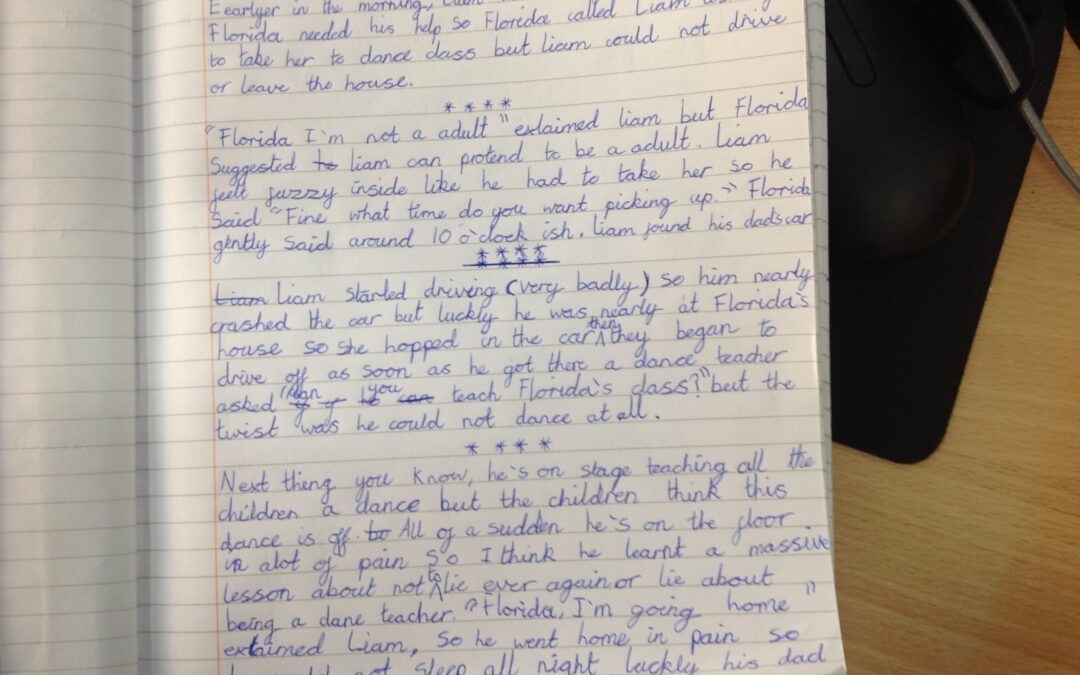 Eearlyer in the morning, Liam
Florida needed his help so Florida called Liam
to take her to dance class but liam could not drive
or leave the house.
* * * *
"Florida I'm not a adult" exlaimed liam but Florida
Suggested to liam can pretend to be a adult. Liam
feelt fuzzy inside like he had to take her so he
Said "Fine what time do you want picking up." Florida
gently Said around 10 o'clock ish. liam found his dads car
* * * *
Liam Liam started driving (very badly) so him nearly
crashed the car but luckly he was nearly at Florida's
house so she hopped in the car then they began to
drive off as soon as he got there a dance teacher
asked "can you can teach Florida's class?" but the
twist was he could not dance at all.
* * * *
Next thing you know, he's on stage teaching all the
children a dance but the children think this
dance is off. to All of a sudden he's on the floor
in alot of pain So I think he learnt a massive
lesson about not to lie ever again or lie about
being a dane teacher. "Florida, I'm going home"
exlaimed Liam, So he went home in pain so
not sleep all night luckly his dad